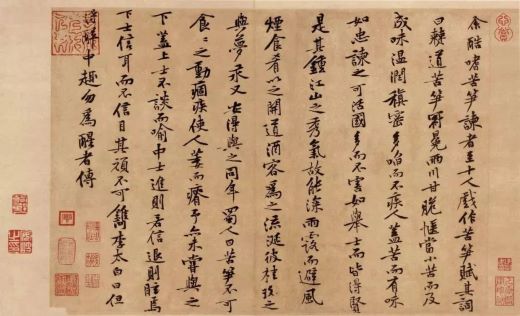 余酷嗜苦笋諫者至十人戲作苦笋賦其詞
曰僰道苦笋冠冕兩川甘脆愜當小苦而及
成味溫潤縝密多啗而不疾人蓋苦而有味
如忠諫之可活國多而不害如舉士而皆得賢
是其鍾江山之秀氣故能深雨露而避風
煙食肴以之開道酒客為之流涎彼桂玫之
與夢永又安得與之同年蜀人曰苦笋不可
食〻之動痼疾使人萎而瘠予亦未嘗與之
下蓋上士不談而喻中士進則若信退則眩焉
下士信耳而不信目其頑不可鐫李太白曰但
得醉中趣勿為醒者傳